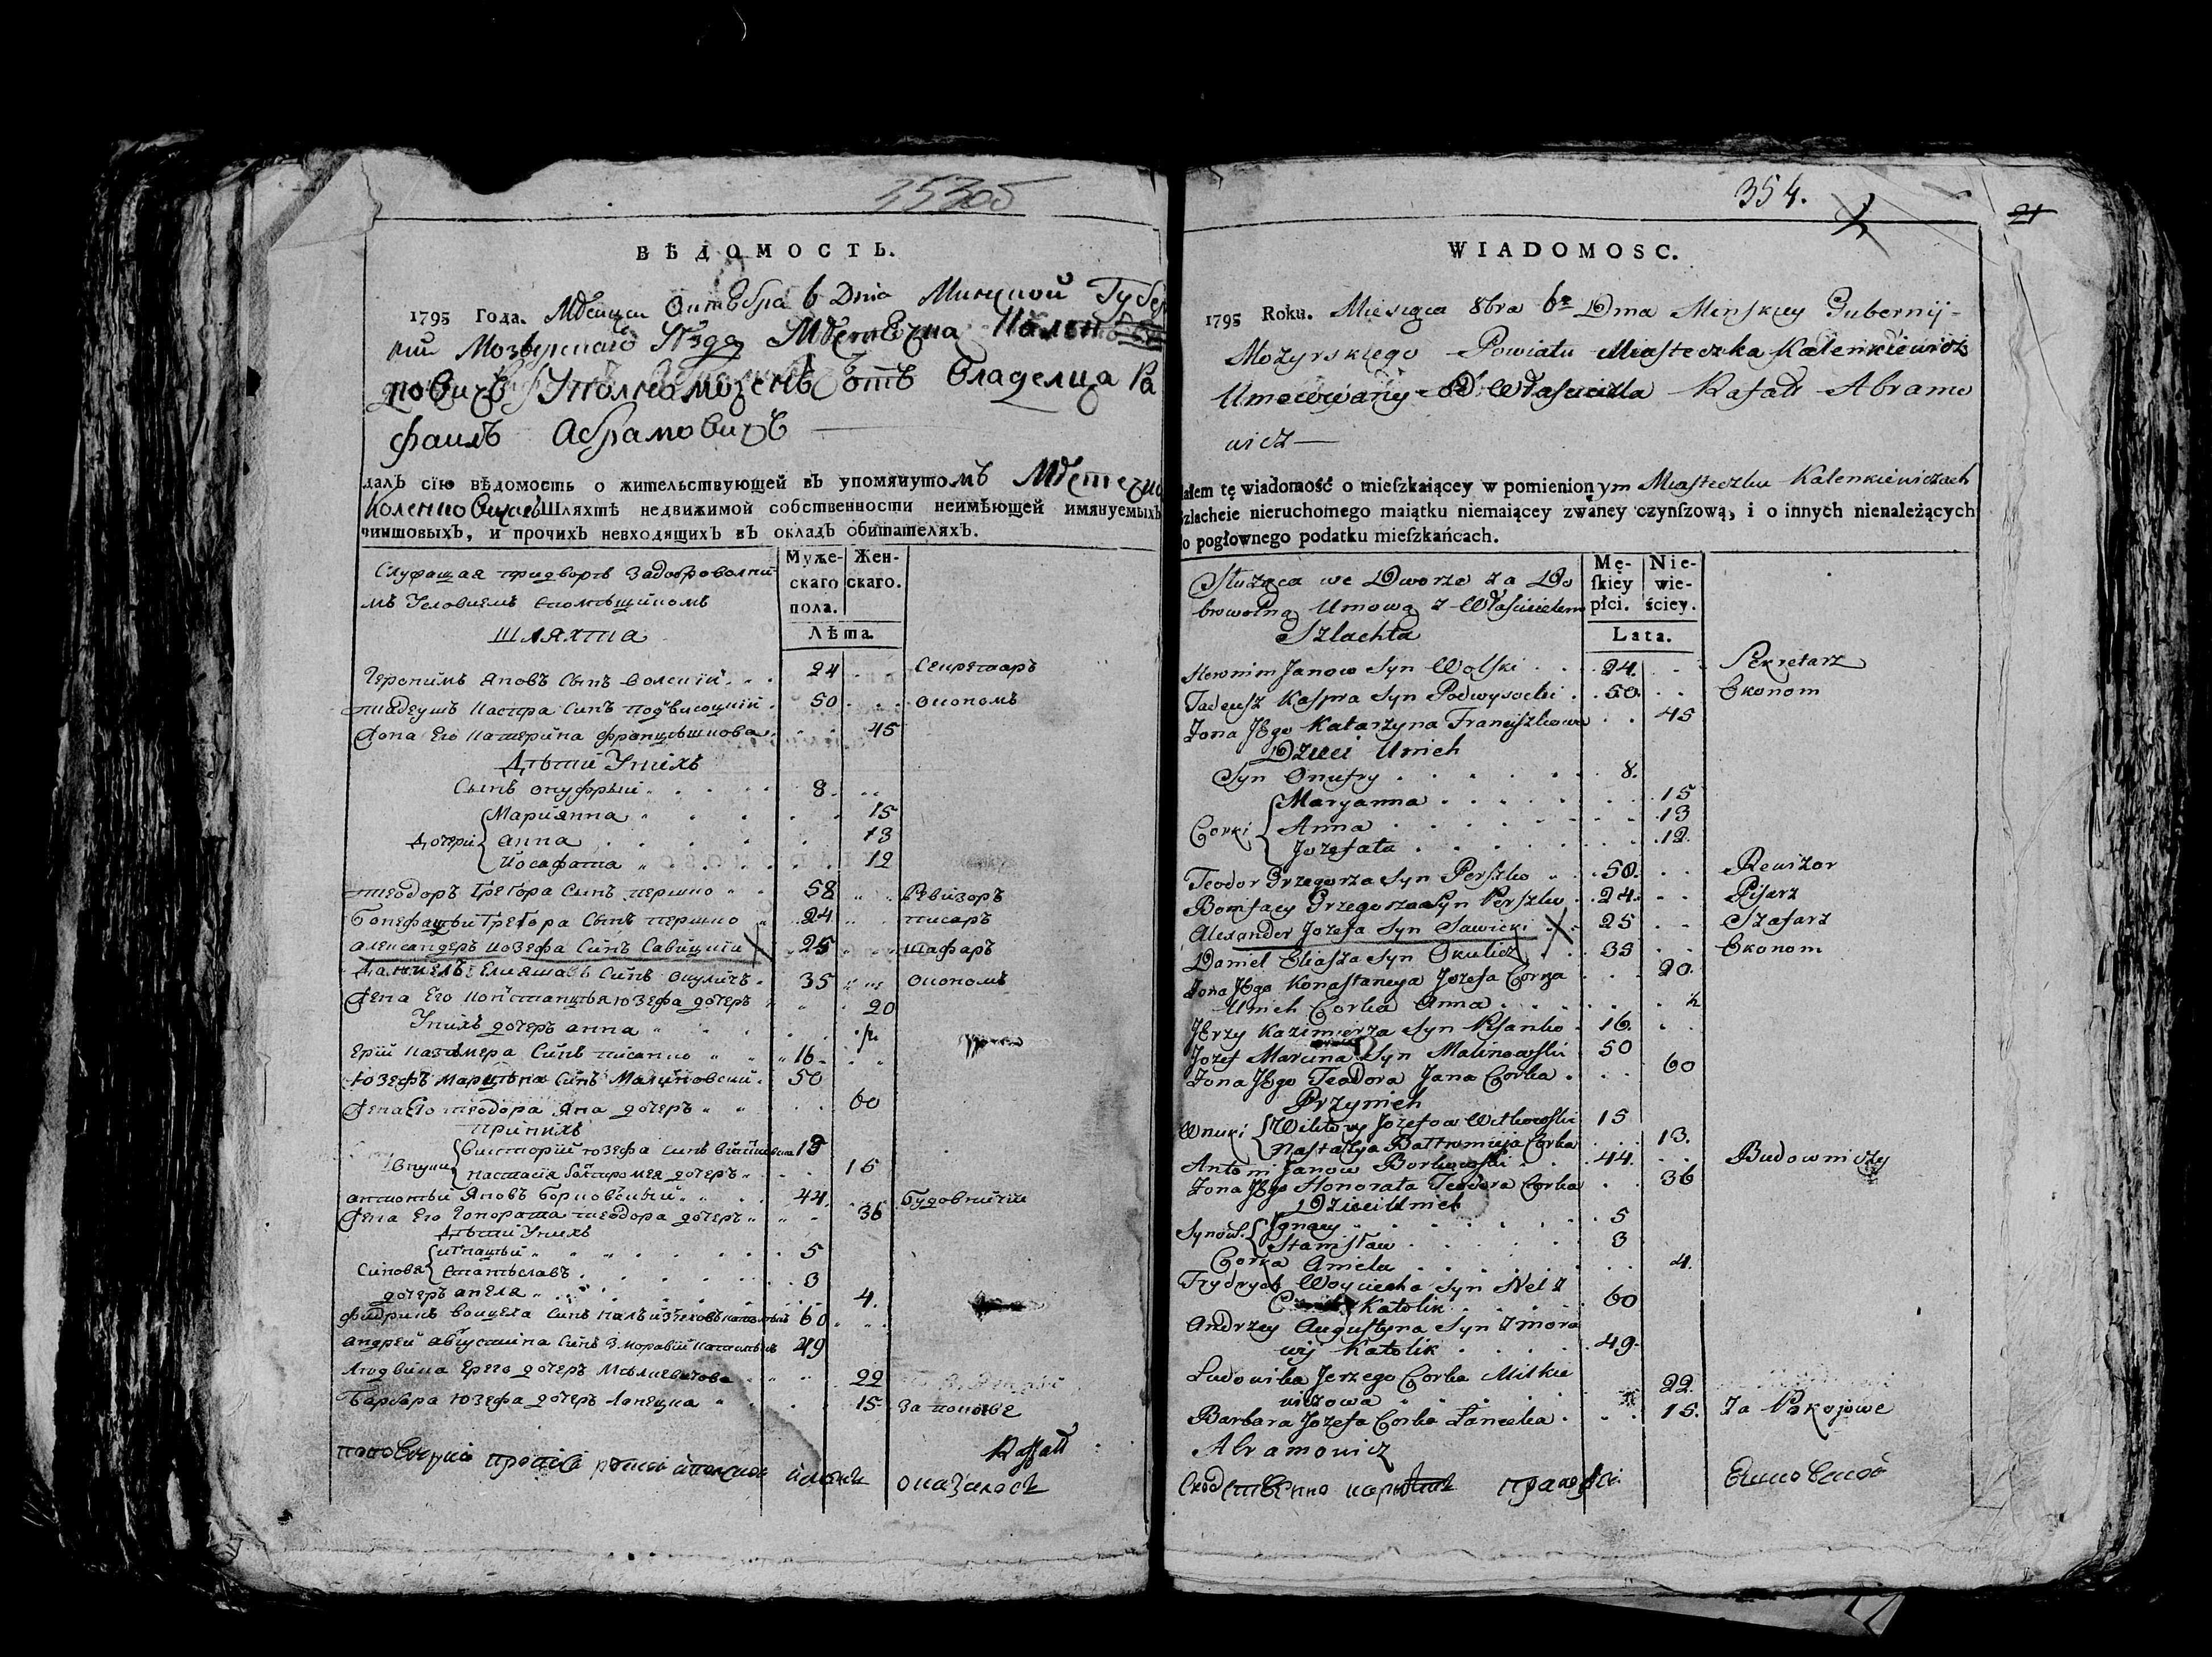 35305
ВѢДОМОСТЬ.
1795 Года. Мѣсяца Октября 6 Дnia Минской Губер
нии Мозырскаго Уѣзда Мѣстечка Колен
ковичъ Уполномоченъ отъ Владелца Ра
фаилъ Абрамовичъ
далъ сїю вѣдомость о жительствующей въ упомянутомъ Мѣстечку
Коленковичахъ Шляхтѣ недвижимой собственности неимѣющей имянуемыхъ
чиншовыхъ, и прочихъ невходящихъ въ окладъ обитателяхъ.
Муже-скаго пола. Жен-скаго.
Лѣта.
Служащая придворѣ задоброволни
мъ Условиемъ спомѣщикомъ
Шляхта
Геронимъ Яновъ Сынъ Волский 24 Секретаръ
Тадеушъ Каспра Синъ Подвисоцкий 50 Економъ
Жона Его Катерина Францѣшкова 45
Дѣти Унихъ
Сынъ Онуфрый 8
Дочери
Марианна 15
Анна 13
Йосафата 12
Теодоръ Грегора Сынъ Першко 58 Ревизоръ
Бонефацы Грегора Сынъ Першко 24 писаръ
Александеръ Иозефа Синъ Савицкий 25 шафаръ
Даниелъ Елияшавъ Синъ Окуличъ 35 Економъ
Жена Его Констанцыя Юзефа дочеръ 20
Унихъ дочеръ Анна ½
Ерий Казѣмера Синъ писанко 16
Юзефъ Марцына Синъ Малиновский 50
Жена Его Теодора Яна дочеръ 60
Принихъ
Внуки
Викторий Юзефа Синъ 15
Настасїя Бартромея дочеръ 15
Антоный Яновъ Борковский 44 Будовничий
Жена Его Гонората Теодора дочеръ 36
Дѣти Унихъ
Синовя
Игнацый 5
Станѣславъ 3
дочеръ Анеля 4.
Фридрихъ Войцеха Синъ 60
Андрей Августина Синъ Зморавий Католикъ 49
Людвика Ерего дочеръ Мѣлкевичова 22
Барбара Юзефа дочеръ Лонецка 15 За покове
Rafał
оказалось
354.
21
WIADOMOSC.
1795 Roku. Miesiąca 8bra 6go Dnia Minskiey Gubernij
Mozyrskiego Powiatu Miasteczka Kalenkiewicz
Umocowany od Właściciela Rafał Abramo
wicz
dałem tę wiadomość o mieſzkaiącey w pomienionym Miasteczku Kalenkiewiczach
Szlachcie nieruchomego maiątku niemaiącey zwaney czynſzową, i o innych nienależących
do pogłownego podatku mieſzkańcach.
Mę-ſkiey płci. Nie-wie-ściey.
Lata.
Służąca we Dworze za Do
browolną Umową z Właścicielem
Szlachta
Hieronim Janow Syn Wolski 24. Sekretarz
Tadeusz Kaspra Syn Podwysocki 50 Ekonom
Żona Jego Katarzyna Franciszkowa 45
Dzieci Unich
Syn Onufry 8.
Corki
Maryanna 15
Anna 13
Jozefata 12.
Teodor Grzegorza Syn Perszko 50. Rewizor
Bonifacy Grzegorza Syn Perszko 24. Pisarz
Alexander Jozefa Syn Sawicki 25 Szafarz
Daniel Eliasza Syn Okulicz 35 Ekonom
Żona Jego Konstancya Jozefa Corka 20.
Unich Corka Anna ½
Jerzy Kazimierza Syn Pisanko 16.
Jozef Marcina Syn Malinowski 50
Żona Jego Teodora Jana Corka 60
Przynich
Wnuki
Wiktory Jozefow Witkowski 15
Nastazya Bartromieja Corka 13.
Antoni Janow Borkowski 44. Budowniczy
Żona Jego Honorata Teodora Corka 36
Dzieci Unich
Synow.
Jgnacy 5
Stanisław 3
Corka Aniela 4.
Frydrych Woyciecha Syn
Katolik 60
Andrzey Augustyna Syn Zmora
wij Katolik 49.
Ludowika Jerzego Corka Milkie
wiczowa 22.
Barbara Jozefa Corka Łanecka 15. Za Pokojowe
Abramowicz